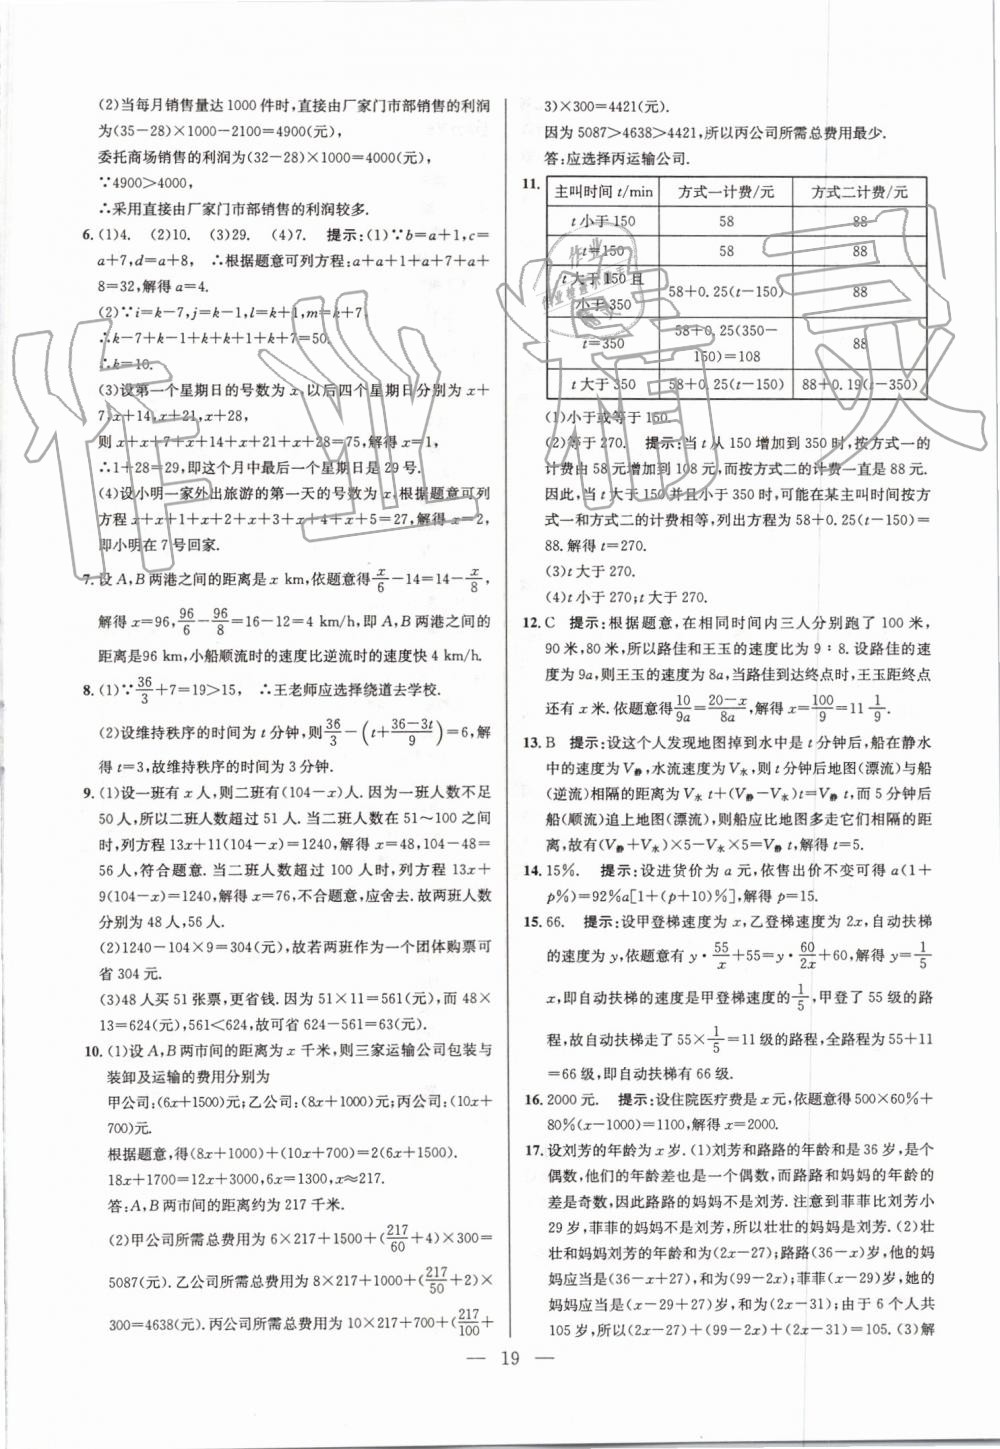 (2)当每月销售量达1000件时,直接由厂家门市部销售的利润
为(35-28)×1000-2100=4900(元),
委托商场销售的利润为(32-28)×1000=4000(元),
∵4900>4000,
∴采用直接由厂家门市部销售的利润较多.
6. (1)4. (2)10. (3)29. (4)7. 提示:(1)∵b=a+1,c=
a+7,d=a+8, ∴根据题意可列方程:a+a+1+a+7+a+
8=32,解得a=4.
(2)∵i=k-7,j=k-1,l=k+1,m=k+7,
∴k-7+k-1+k+k+1+k+7=50.
∴k=10.
(3)设第一个星期日的号数为x,以后四个星期日分别为x+
7,x+14,x+21,x+28,
则x+x+7+x+14+x+21+x+28=75,解得x=1,
∴1+28=29,即这个月中最后一个星期日是29号.
(4)设小明一家外出旅游的第一天的号数为x,根据题意可列
方程x+x+1+x+2+x+3+x+4+x+5=27,解得x=2,
即小明在7号回家.
7. 设A,B两港之间的距离是x km,依题意得x/6-14=14-x/8,
解得x=96,96/6-96/8=16-12=4 km/h,即A,B两港之间的
距离是96 km,小船顺流时的速度比逆流时的速度快4 km/h.
8. (1)∵36/3+7=19>15, ∴王老师应选择绕道去学校.
(2)设维持秩序的时间为t分钟,则36/3-(t+(36-3t)/9)=6,解
得t=3,故维持秩序的时间为3分钟.
9. (1)设一班有x人,则二班有(104-x)人.因为一班人数不足
50人,所以二班人数超过51人.当二班人数在51～100之间
时,列方程13x+11(104-x)=1240,解得x=48,104-48=
56人,符合题意.当二班人数超过100人时,列方程13x+
9(104-x)=1240,解得x=76,不合题意,应舍去.故两班人数
分别为48人,56人.
(2)1240-104×9=304(元),故若两班作为一个团体购票可
省304元.
(3)48人买51张票,更省钱.因为51×11=561(元),而48×
13=624(元),561<624,故可省624-561=63(元).
10. (1)设A,B两市间的距离为x千米,则三家运输公司包装与
装卸及运输的费用分别为
甲公司:(6x+1500)元;乙公司:(8x+1000)元;丙公司:(10x+
700)元.
根据题意,得(8x+1000)+(10x+700)=2(6x+1500).
18x+1700=12x+3000,6x=1300,x≈217.
答:A,B两市间的距离约为217千米.
(2)甲公司所需总费用为6×217+1500+(217/60+4)×300=
5087(元).乙公司所需总费用为8×217+1000+(217/50+2)×
300=4638(元).丙公司所需总费用为10×217+700+(217/100+
3)×300=4421(元).
因为5087>4638>4421,所以丙公司所需总费用最少.
答:应选择丙运输公司.
11.
主叫时间t/min 方式一计费/元 方式二计费/元
t小于150 58 88
t=150 58 88
t大于150且小于350 58+0.25(t-150) 88
t=350 58+0.25(350-150)=108 88
t大于350 58+0.25(t-150) 88+0.19(t-350)
(1)小于或等于150.
(2)等于270. 提示:当t从150增加到350时,按方式一的
计费由58元增加到108元,而按方式二的计费一直是88元.
因此,当t大于150并且小于350时,可能在某主叫时间按方
式一和方式二的计费相等,列出方程为58+0.25(t-150)=
88.解得t=270.
(3)t大于270.
(4)t小于270;t大于270.
12. C 提示:根据题意,在相同时间内三人分别跑了100米,
90米,80米,所以路佳和王玉的速度比为9∶8.设路佳的速
度为9a,则王玉的速度为8a,当路佳到达终点时,王玉距终点
还有x米.依题意得10/9a=(20-x)/8a,解得x=100/9=11 1/9.
13. B 提示:设这个人发现地图掉到水中是t分钟后,船在静水
中的速度为V静,水流速度为V水,则t分钟后地图(漂流)与船
(逆流)相隔的距离为V水t+(V静-V水)t=V静t,而5分钟后
船(顺流)追上地图(漂流),则船应比地图多走它们相隔的距
离,故有(V静+V水)×5-V水×5=V静t,解得t=5.
14. 15%. 提示:设进货价为a元,依售出价不变可得a(1+
p%)=92%a[1+(p+10)%],解得p=15.
15. 66. 提示:设甲登梯速度为x,乙登梯速度为2x,自动扶梯
的速度为y,依题意有y·55/x+55=y·60/2x+60,解得y=1/5
x,即自动扶梯的速度是甲登梯速度的1/5,甲登了55级的路
程,故自动扶梯走了55×1/5=11级的路程,全路程为55+11
=66级,即自动扶梯有66级.
16. 2000元. 提示:设住院医疗费是x元,依题意得500×60%+
80%(x-1000)=1100,解得x=2000.
17. 设刘芳的年龄为x岁.(1)刘芳和路路的年龄和是36岁,是个
偶数,他们的年龄差也是一个偶数,而路路和妈妈的年龄的
差是奇数,因此路路的妈妈不是刘芳.注意到菲菲比刘芳小
29岁,菲菲的妈妈不是刘芳,所以壮壮的妈妈是刘芳.(2)壮
壮和妈妈刘芳的年龄和为(2x-27);路路(36-x)岁,他的妈
妈应当是(36-x+27),和为(99-2x);菲菲(x-29)岁,她的
妈妈应当是(x-29+27)岁,和为(2x-31);由于6个人共
105岁,所以(2x-27)+(99-2x)+(2x-31)=105.(3)解
— 19 —
作业精灵